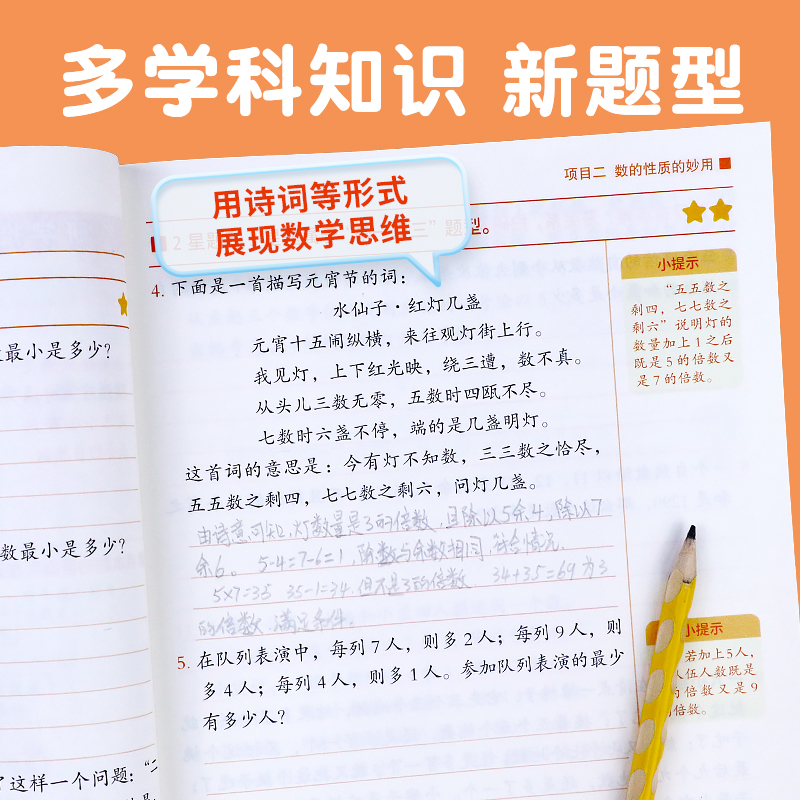 多学科知识 新题型
项目二 数的性质的妙用
用诗词等形式
展现数学思维
2星题
三”题型。
4. 下面是一首描写元宵节的词：
水仙子·红灯几盏
元宵十五闹纵横，来往观灯街上行。
我见灯，上下红光映，绕三遭，数不真。
从头儿三数无零，五数时四瓯不尽。
七数时六盏不停，端的是几盏明灯。
这首词的意思是：今有灯不知数，三三数之恰尽，
五五数之剩四，七七数之剩六，问灯几盏。
由诗意可知，灯数量是3的倍数，且除以5余4，除以7
余6。 5-4=7-6=1，除数与余数相同，符合情况。
5×7=35 35-1=34，但不是3的倍数 34+35=69 为3
的倍数，满足条件。
5. 在队列表演中，每列7人，则多2人；每列9人，则
多4人；每列4人，则多1人。参加队列表演的最少
有多少人？
小提示
“五五数之
剩四，七七数之
剩六”说明灯的
数量加上1之后
既是5的倍数又
是7的倍数。
小提示
若加上5人，
人伍人数既是
的倍数又是9
倍数。
最小是多少？
数最小是多少？
这样一个问题：“二